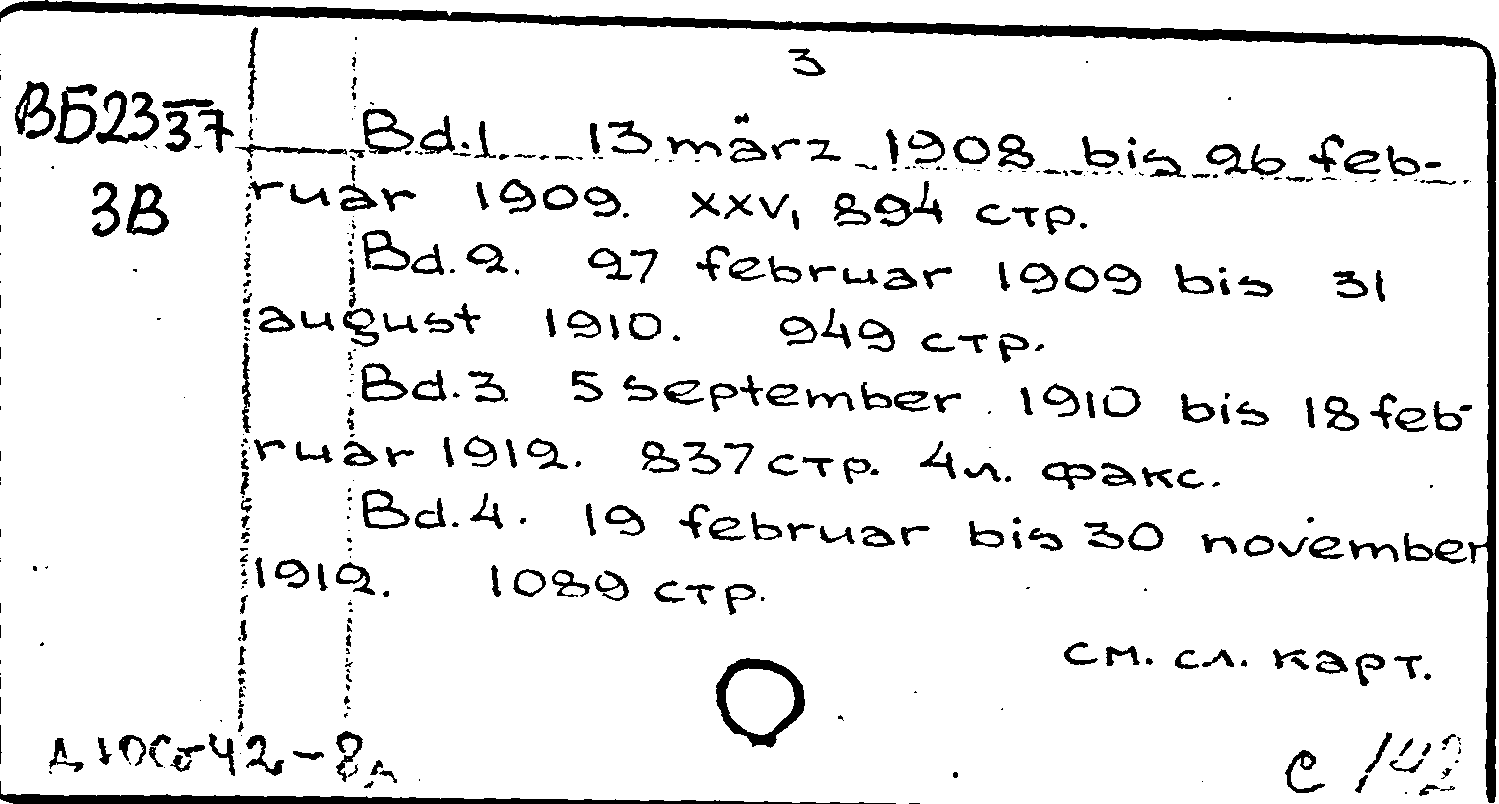 3
ВБ23 37
3В
Bd.1 13 märz 1908 bis 26 feb-
ruar 1909. XXV, 894 стр.
Bd.2. 27 februar 1909 bis 31
august 1910. 949 стр.
Bd.3 5 september 1910 bis 18 feb-
ruar 1912. 837 стр. 4 л. факс.
Bd.4. 19 februar bis 30 november
1912. 1089 стр.
см. сл. карт.
с 142